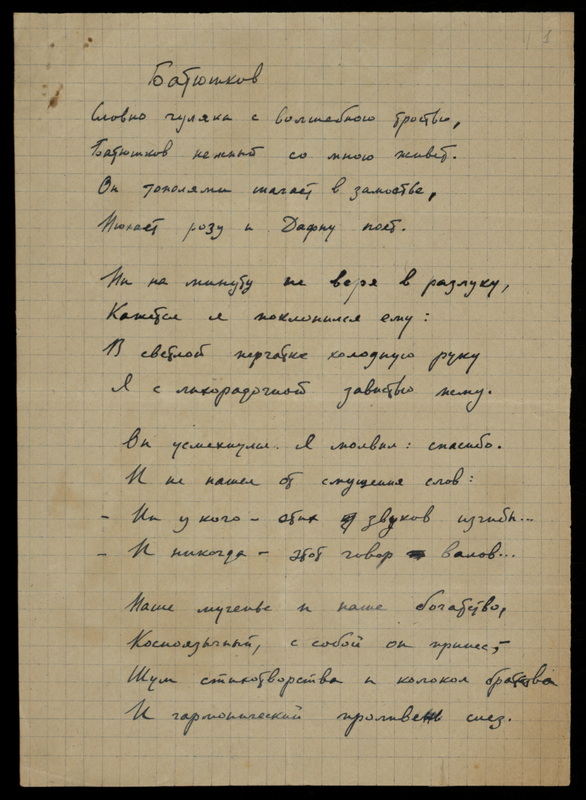 1
Батюшков
Словно гуляка с волшебною тростью,
Батюшков нежный со мною живет.
Он тополями шагает в замостье,
Нюхает розу и Дафну поет.
Ни на минуту не веря в разлуку,
Кажется я поклонился ему:
В светлой перчатке холодную руку
Я с лихорадочной завистью жму.
Он усмехнулся. Я молвил: спасибо.
И не нашел от смущения слов:
– Ни у кого – этих звуков изгибы...
– И никогда – этот говор валов...
Наше мученье и наше богатство,
Косноязычный, с собой он принес,–
Шум стихотворства и колокол братства
И гармонический проливень слез.